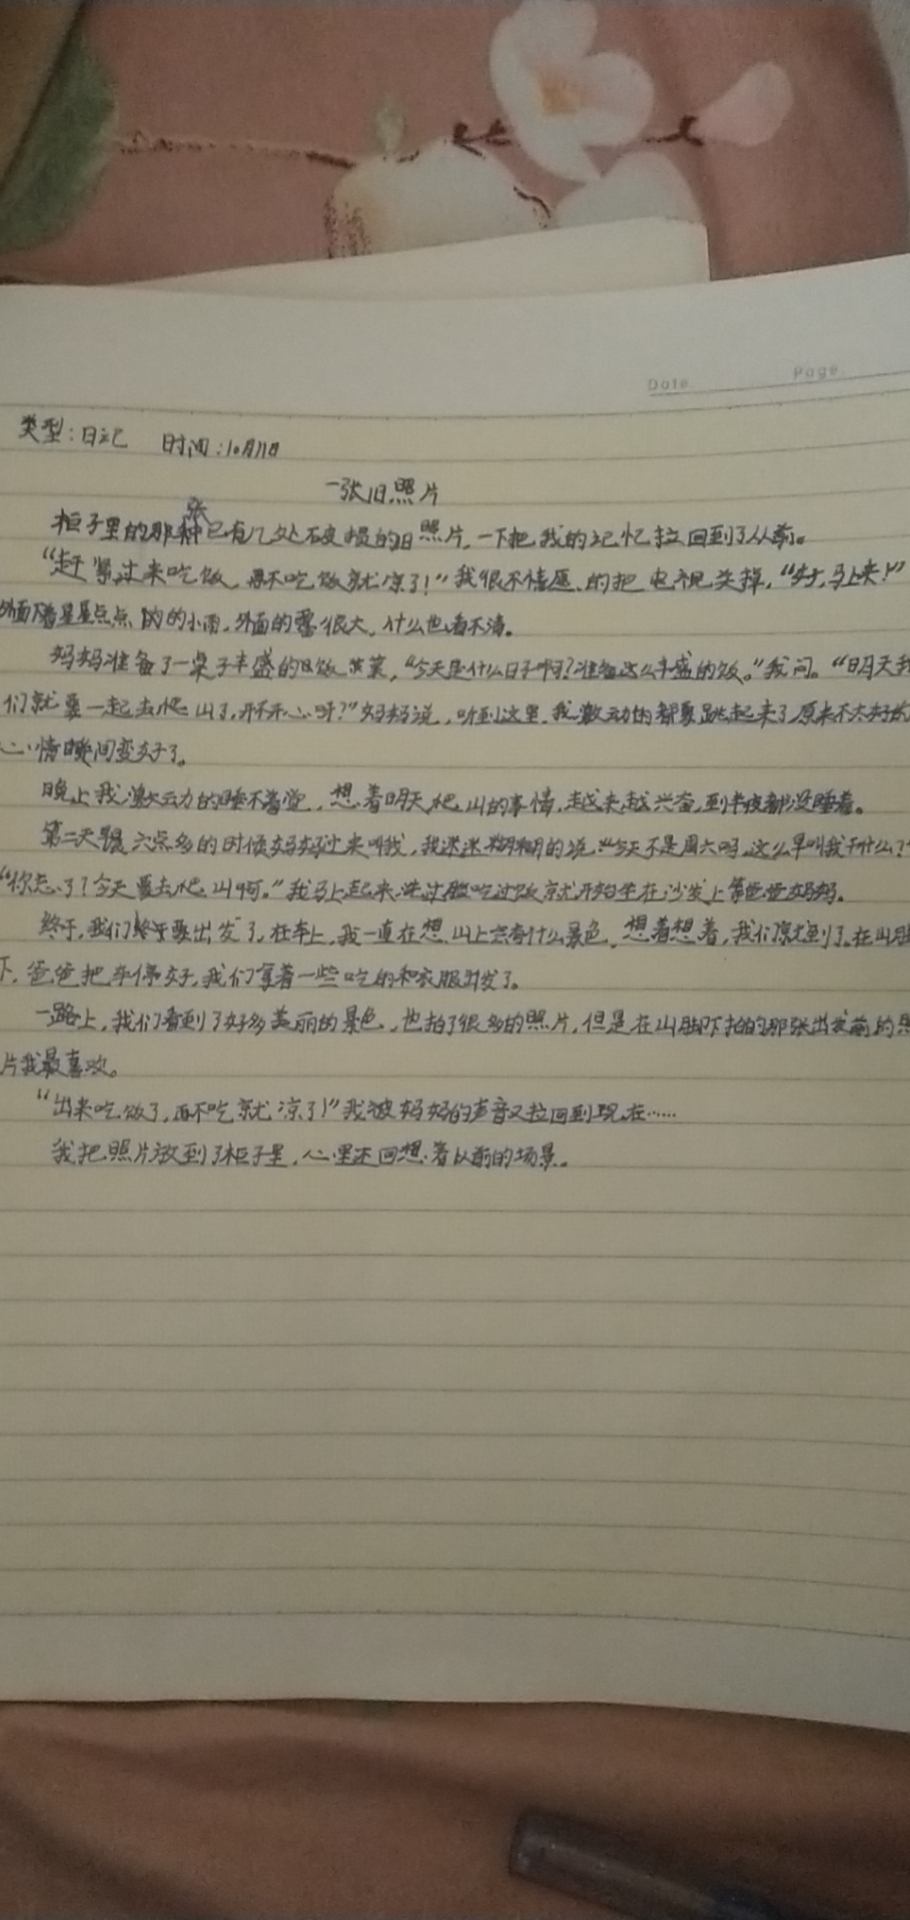 Date Page
类型:日记 时间:10月11日
一张旧照片
柜子里的那张已有几处破损的旧照片,一下把我的记忆拉回到了从前。
“赶紧过来吃饭,再不吃饭就凉了!”我很不情愿的把电视关掉,“好,马上来!”
外面下着星星点点的小雨,外面的雾很大,什么也看不清。
妈妈准备了一桌子丰盛的饭菜,“今天是什么日子啊?准备这么丰盛的饭。”我问。“明天我
们就要一起去爬山了,开不开心呀?”妈妈说,听到这里,我激动的都要跳起来了,原来不太好的
心情瞬间变好了。
晚上我激动的睡不着觉,想着明天爬山的事情,越来越兴奋,到半夜都没睡着。
第二天早晨六点多的时候妈妈过来叫我,我迷迷糊糊的说“今天不是周六吗,这么早叫我干什么?”
“你忘了?今天要去爬山啊。”我马上起来,洗过脸吃过饭就开始坐在沙发上等爸爸妈妈。
终于,我们终于要出发了,在车上,我一直在想山上会有什么景色,想着想着,我们就到了。在山脚
下,爸爸把车停好,我们拿着一些吃的和衣服出发了。
一路上,我们看到了好多美丽的景色,也拍了很多的照片,但是在山脚下拍的那张出发前的照
片我最喜欢。
“出来吃饭了,再不吃就凉了!”我被妈妈的声音又拉回到现在……
我把照片放到了柜子里,心里还回想着以前的场景。